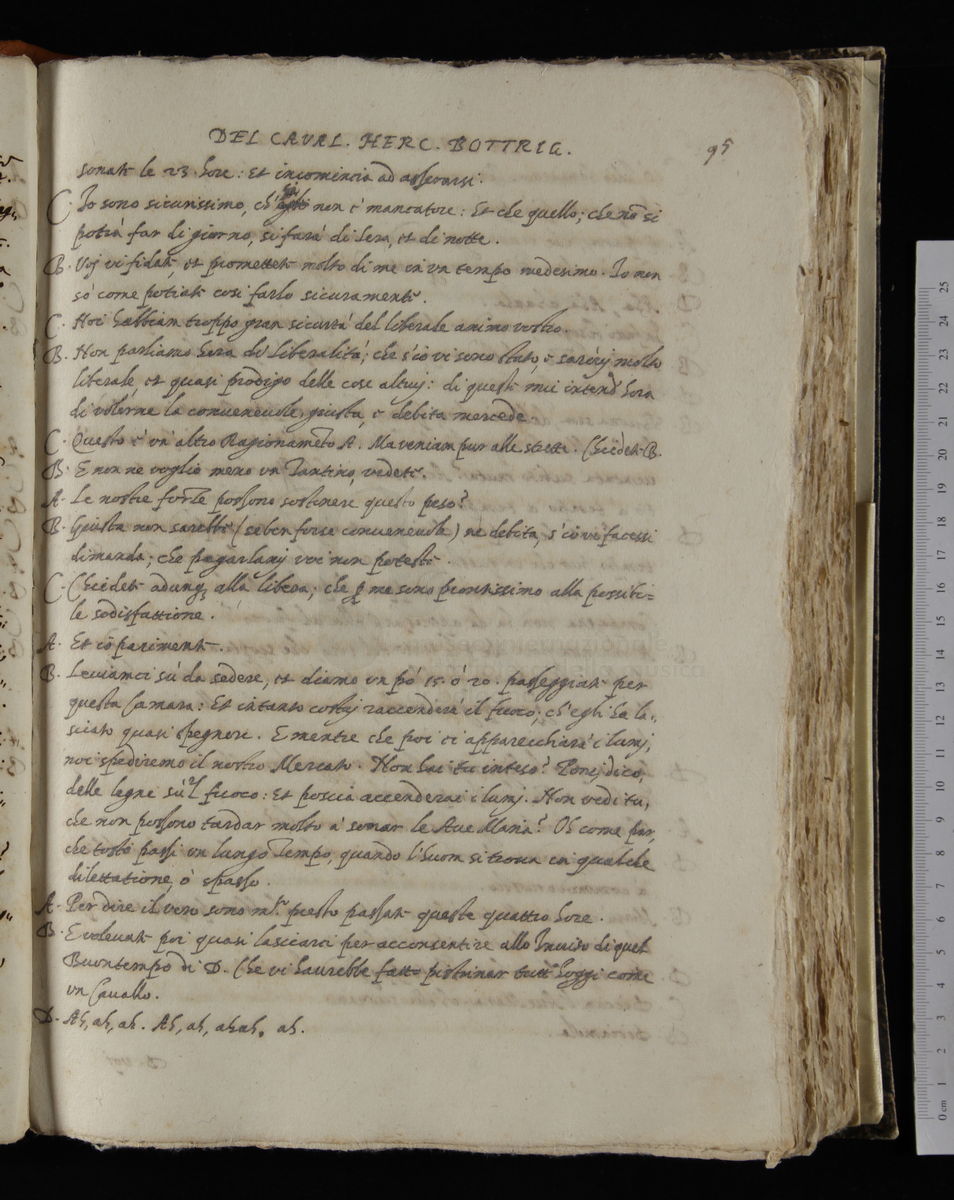 DEL CAVAL. HERC. BOTTRIG.
95
sonate le 23. hore: Et incomincia ad asserarsi.
C. Io sono sicurissimo, ch'ei non è mancatore: Et che quello; che nō si
potrà far di giorno, si farà di sera, et di notte.
B. Voj vi fidate, et promettete molto di me in vn tempo medesimo. Io non
sò come potiate cosi farlo sicuramente.
C. Noi habbiam troppo gran sicurtà del liberale animo vostro.
B. Non parliamo hora de liberalità; che s'io vi sono stato, ò sarovj molto
liberale, et quasi prodigo delle cose altruj: di queste mie intend' hora
di volerne la conueneuole, giusta, è debita mercede.
C. Questo è vn' altro Ragionamēto A. Ma veniam pur alle strette. Chiedete B.
B. E non ne voglio meno vn Tantino, vedete.
A. Le nostre forze possono sostinere questo peso?
B. Giusta non sarebbe (seben forse conueneuole) ne debita, s'io vi facessi
dimanda; che pagarlami voi non poteste.
C. Chiedete adunq; alla libera; che ꝑ me sono prontissimo alla possibi=
le sodisfattione.
A. Et iō parimente.
B. Leuianci sù da sedere, et diamo vn pò 15. ò 20. passeggiate per
questa Camara: Et intanto costuj raccenderà il fuoco; ch'egli ha la,
sciato quasi spegnere. E mentre che poi ci apparecchiarà i lumj,
noi spediremo il nostro Mercato. Non hai tu inteso? Ponj, dico,
delle legne sù 'l fuoco: Et poscia accenderai i lumj. Non vedi tu,
che non possono tardar molto a' sonar le Aue Maria? Oh come par,
che tosto passi vn lungo Tempo, quando l'huom si troua in qualche
dilettatione, ò spasso.
A. Per dire il vero sono m.to presto passate queste quattro hore.
B. E voleuate poi quasi lasciarui per acconsentire allo Inuito di quel
Buontempo di D. Che vi haurebbe fatto pistrinar tutt' hoggi come
vn Cauallo.
D. Ah, ah, ah. Ah, ah, ahah, ah.